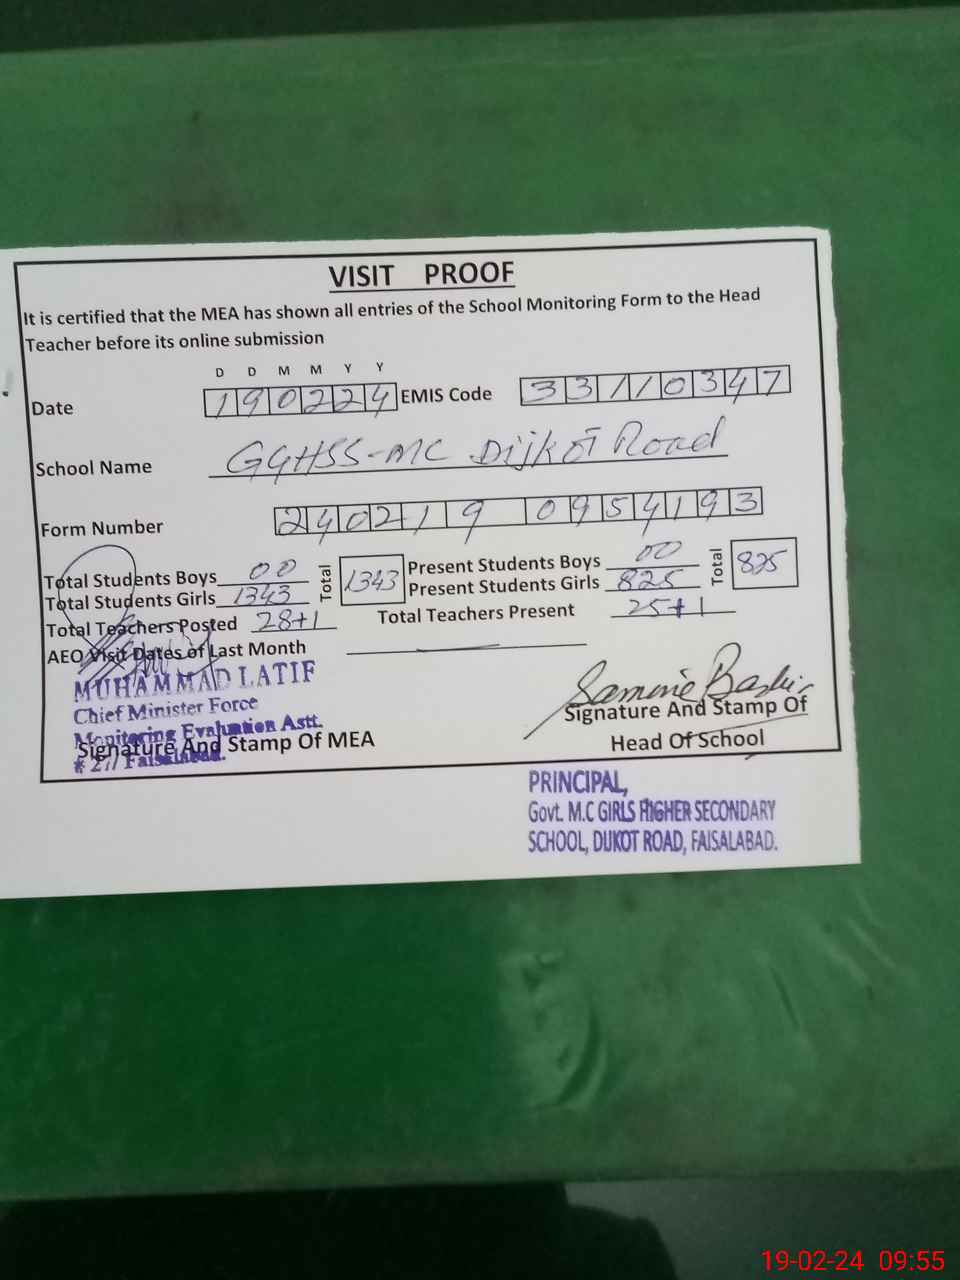 VISIT PROOF
It is certified that the MEA has shown all entries of the School Monitoring Form to the Head
Teacher before its online submission
D D M M Y Y
Date 190224 EMIS Code 33110347
School Name GGHSS-MC Dijkot Road
Form Number 240219 0954193
Total Students Boys 00 Present Students Boys 00
Total Students Girls 1343 Total 1343 Present Students Girls 825 Total 825
Total Teachers Posted 28+1 Total Teachers Present 25+1
AEO Visit Dates of Last Month
MUHAMMAD LATIF
Chief Minister Force
Monitoring Evaluation Astt.
# 27/ Faisalabad.
Signature And Stamp Of MEA
Samine Bashir
Signature And Stamp Of
Head Of School
PRINCIPAL,
Govt. M.C GIRLS HIGHER SECONDARY
SCHOOL, DIJKOT ROAD, FAISALABAD.
19-02-24 09:55